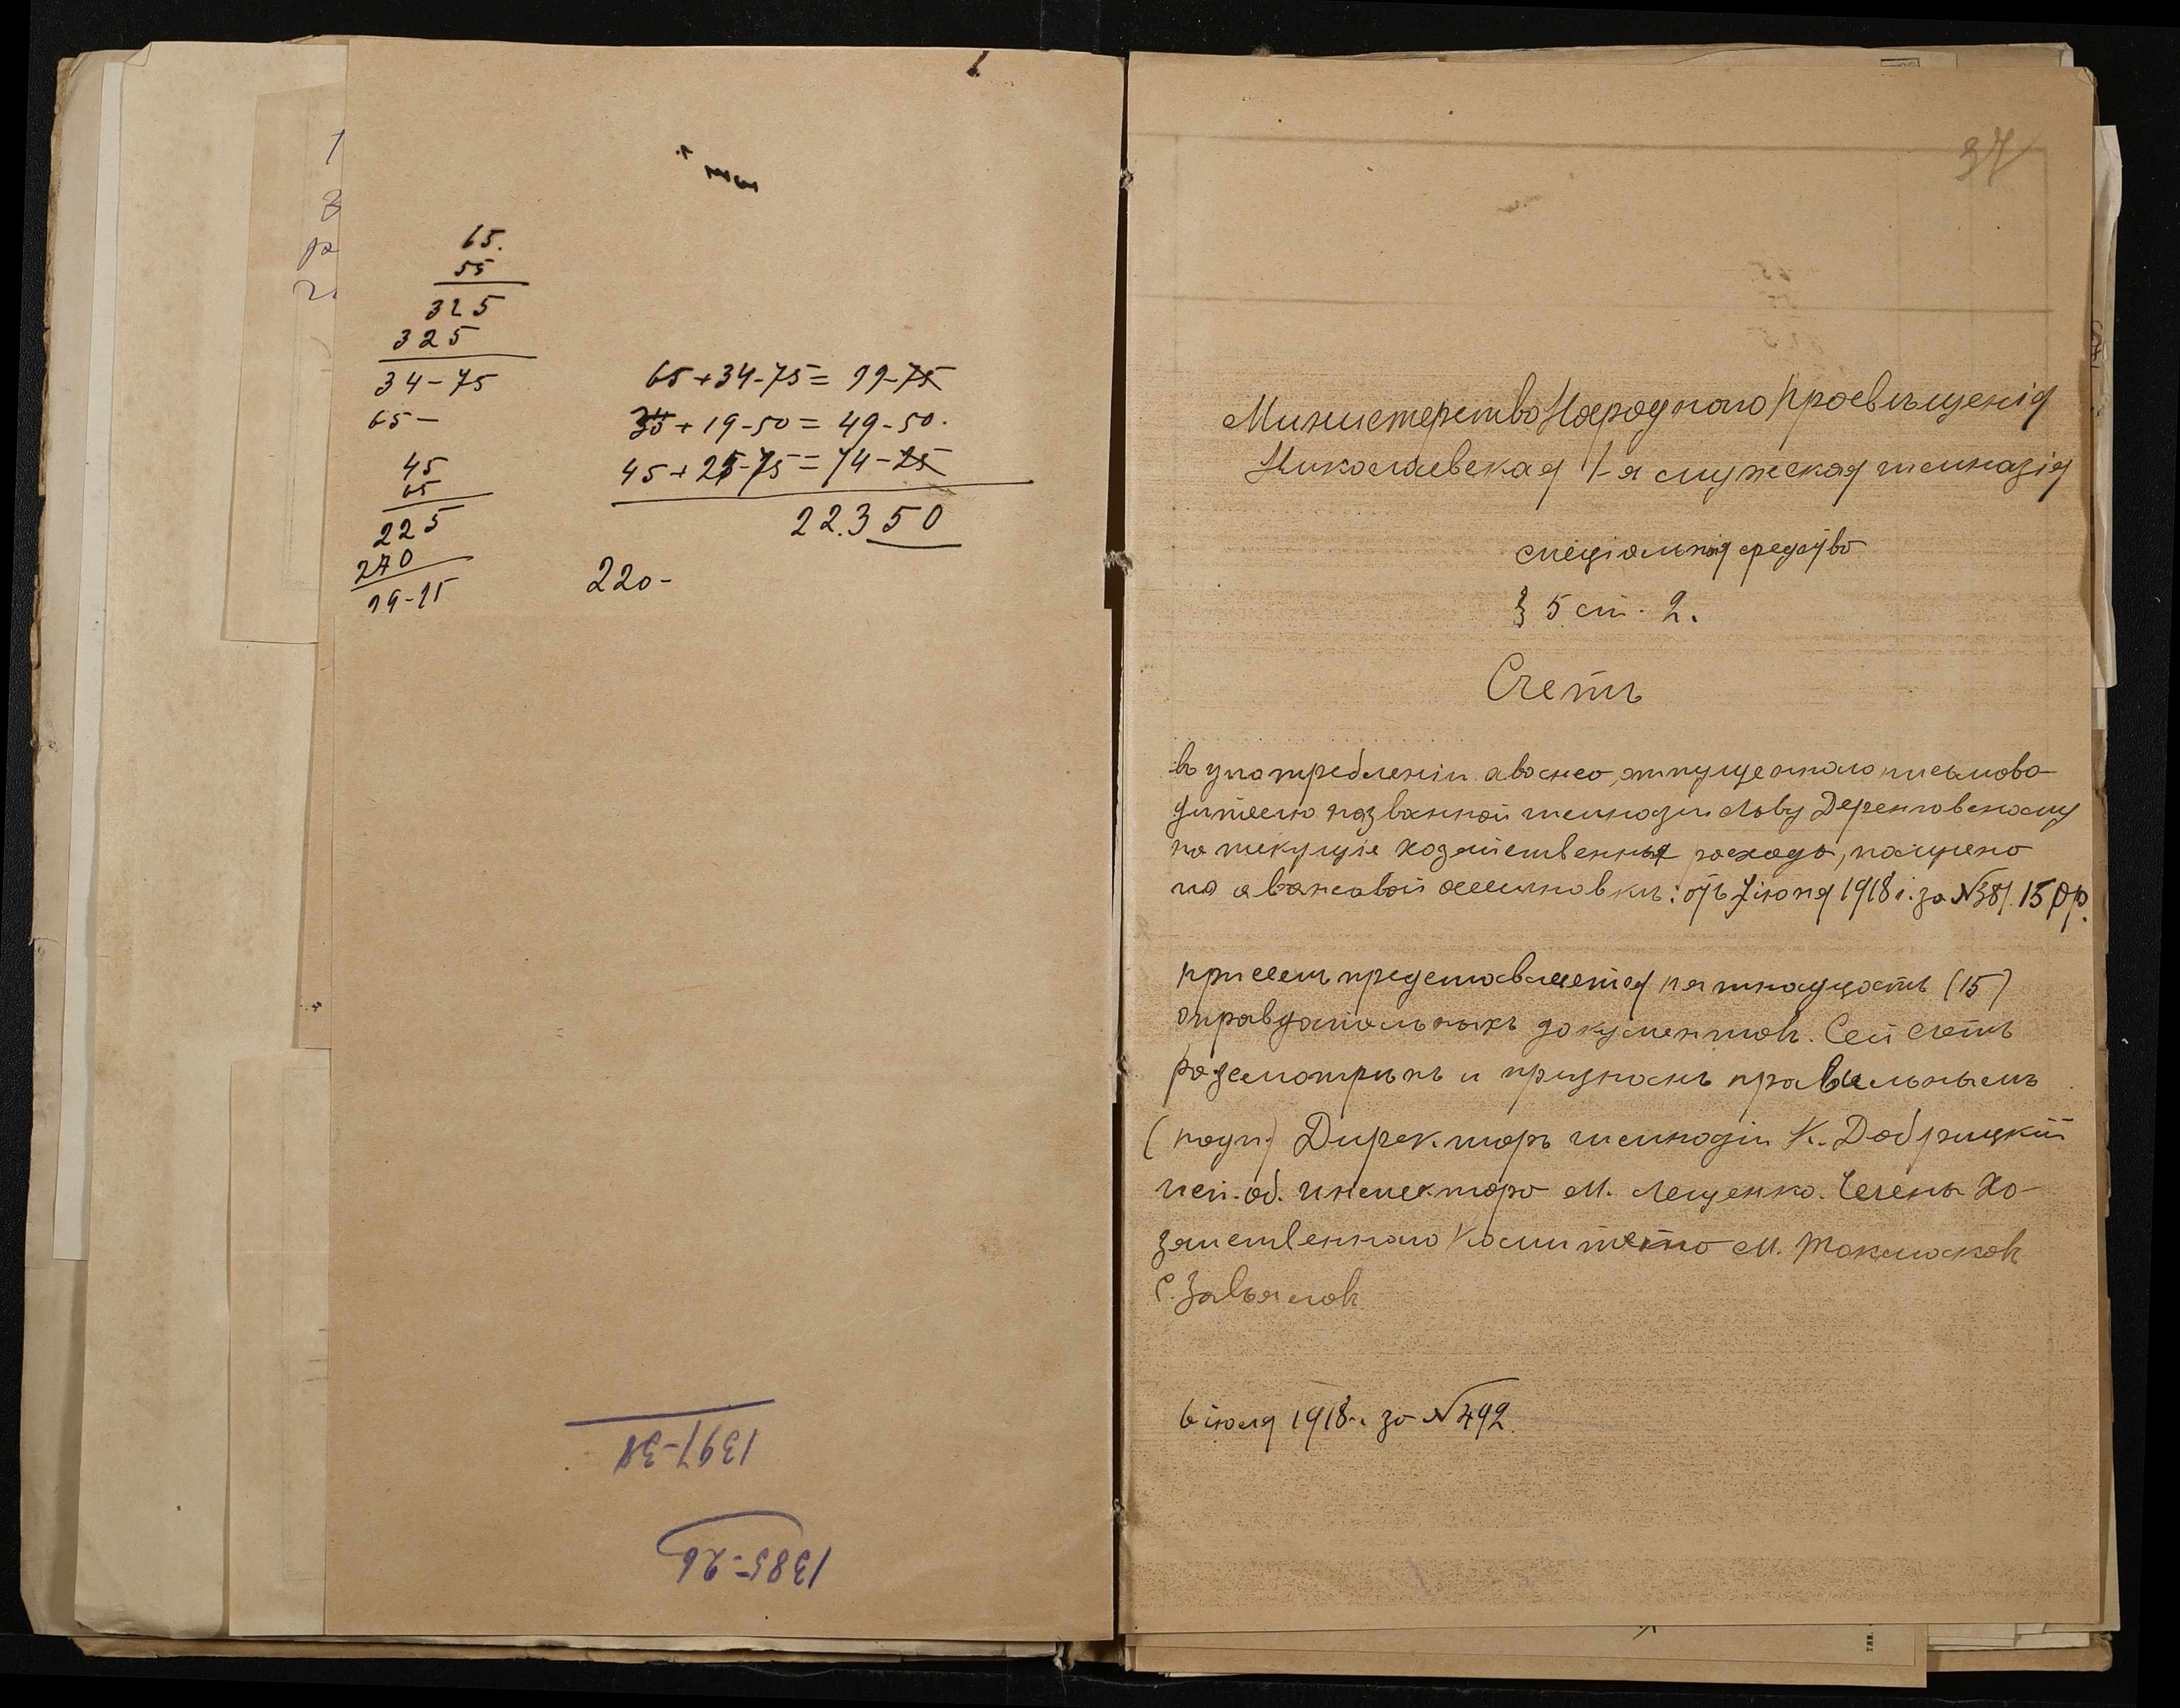 65.
55
325
325
34-75
65-
45
65
225
270
29-25
65+34-75= 99-75
35+19-50= 49-50.
45+25-75= 74-25
22.350
220-
1397-38
1385-26
37
Министерство Народнаго Просвѣщенія
Николаевская 1-я мужская гимназія
спеціальныя средства
§ 5 ст. 2.
Счетъ
въ употребленіи аванса, отпущеннаго письмово
дителю названной гимназіи Льву Деренговскому
на текущіе хозяйственные расходы, получено
по авансовой ассигновкѣ: отъ 7 іюня 1918 г. за № 381. 150р.
При семъ представляется пятнадцать (15)
оправдательныхъ документовъ. Сей счетъ
разсмотрѣнъ и признанъ правильнымъ
(подп.) Директоръ гимназіи К. Добрицкій
исп. об. инспектора М. Лещенко. Члены Хо-
зяйственнаго Комитета М. Токмаковъ
С. Завьяловъ
6 іюля 1918 г. за № 492.